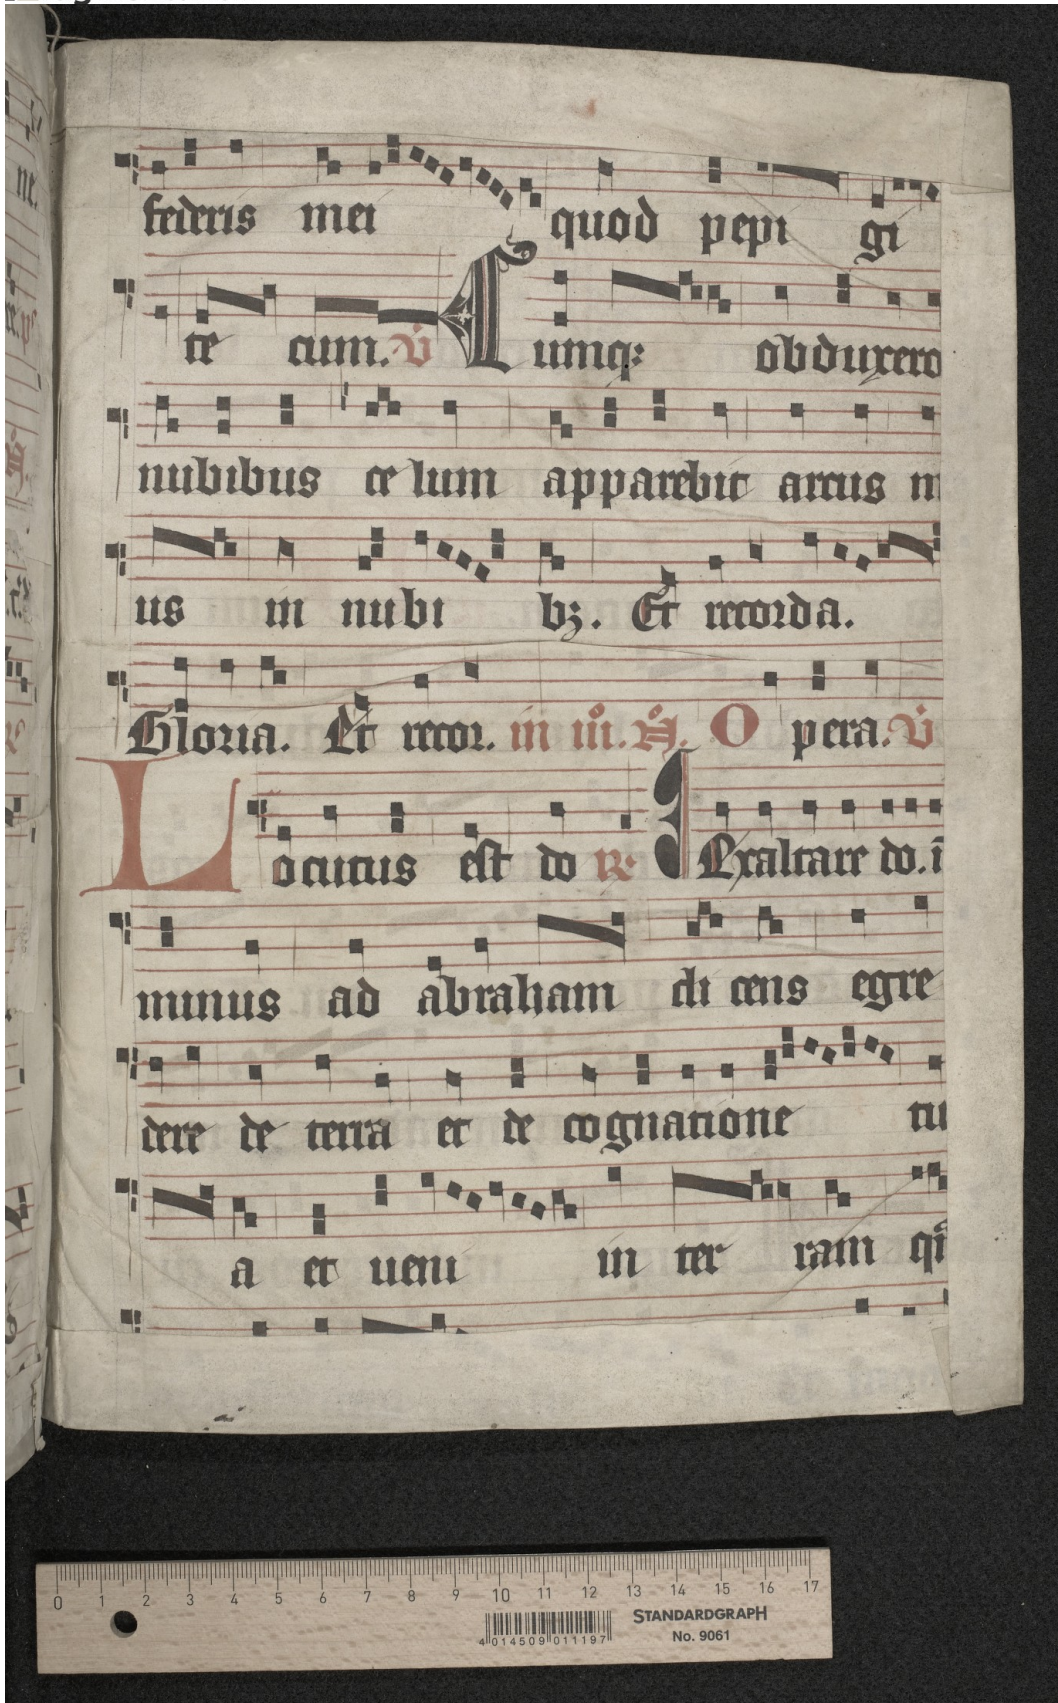 federis mei quod pepi gi
te cum. V̾ Cumq; obduxero
nubibus ce lum apparebit arcus m
us in nubi bꝫ. Et recorda.
Gloria. Et recor. in iii. O pera. V̾
Locutus est do R. Exaltare do. i
minus ad abraham di cens egre
dere de terra et de cognatione tu
a et ueni in ter ram
0 1 2 3 4 5 6 7 8 9 10 11 12 13 14 15 16 17
STANDARDGRAPH
No. 9061
4 014509 011197